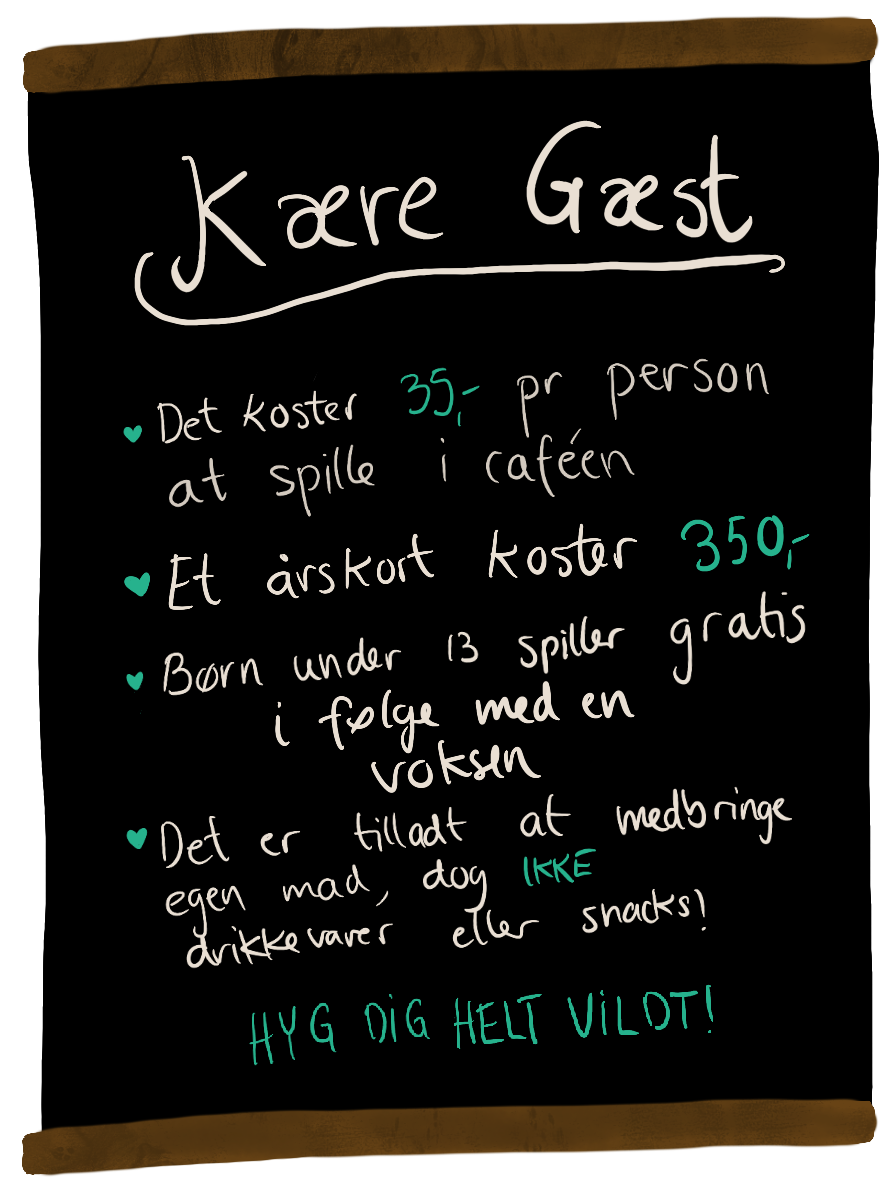 Kære Gæst
Det koster 35,- pr person
at spille i caféen
Et årskort koster 350,-
Børn under 13 spiller gratis
i følge med en
voksen
Det er tilladt at medbringe
egen mad, dog IKKE
drikkevarer eller snacks!
HYG DIG HELT VILDT!